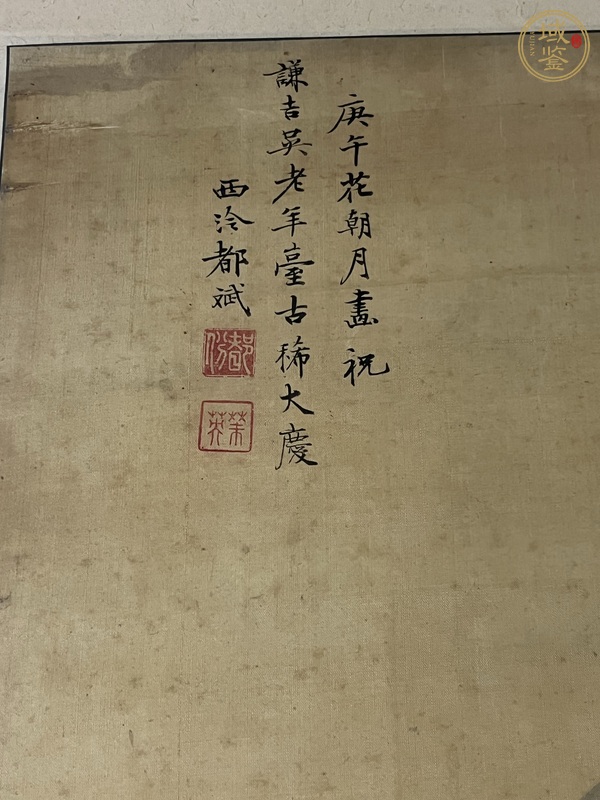 庚午花朝月畫祝
謙吉吳老年臺古稀大慶
西泠都斌
域鉴